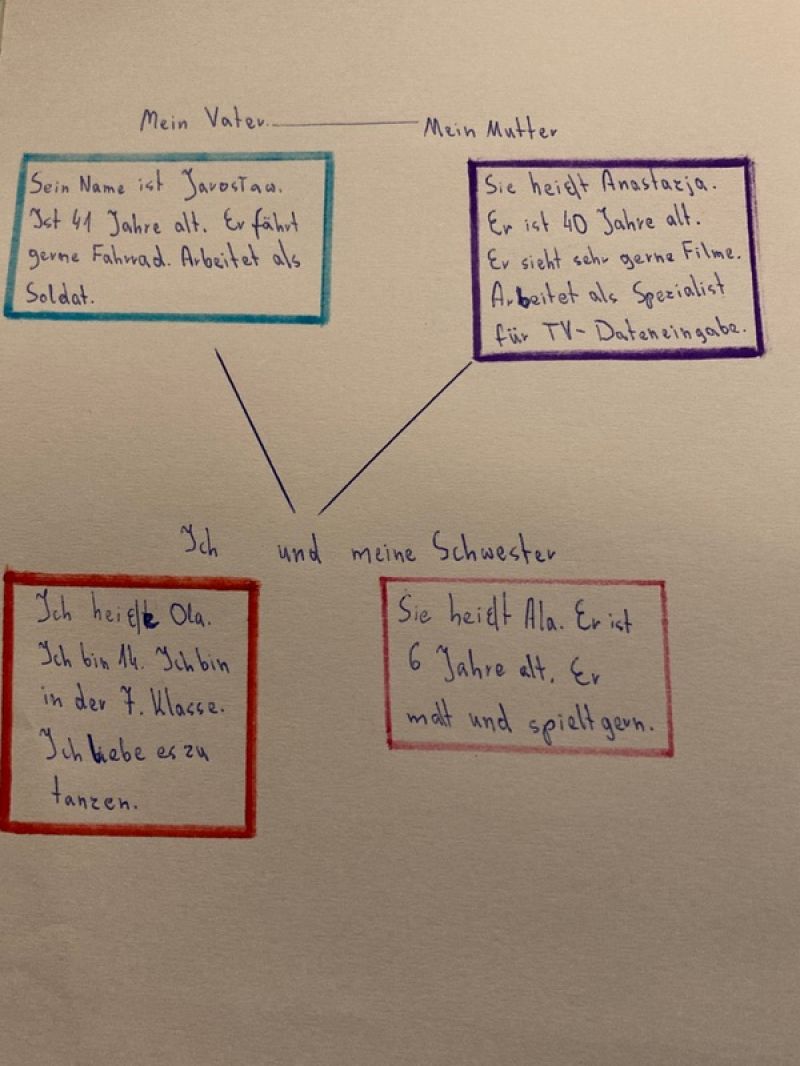 Mein Vater
Mein Mutter
Sein Name ist Jarosław.
Ist 41 Jahre alt. Er fährt
gerne Fahrrad. Arbeitet als
Soldat.
Sie heißt Anastazja.
Er ist 40 Jahre alt.
Er sieht sehr gerne Filme.
Arbeitet als Spezialist
für TV-Dateneingabe.
Ich und meine Schwester
Ich heiße Ola.
Ich bin 14. Ich bin
in der 7. Klasse.
Ich liebe es zu
tanzen.
Sie heißt Ala. Er ist
6 Jahre alt. Er
malt und spielt gern.